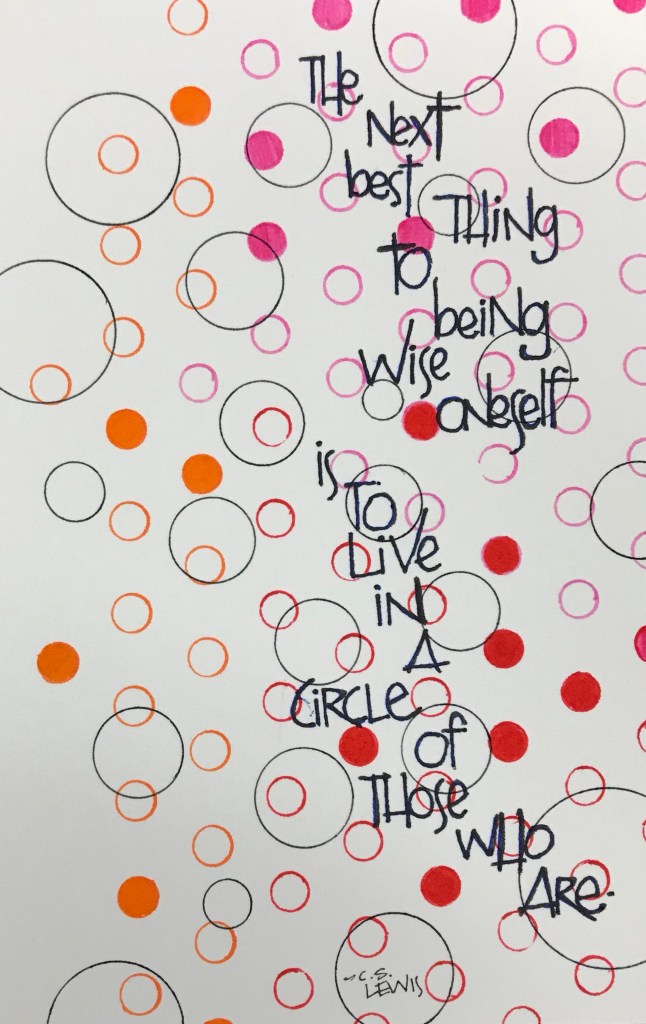 THe
Next
best
THiNg
To
beiNg
Wise
oNeself
is
To
LiVe
iN
A
CiRCLe
of
THose
WHO
ARe.
~C.S.
LEWIS